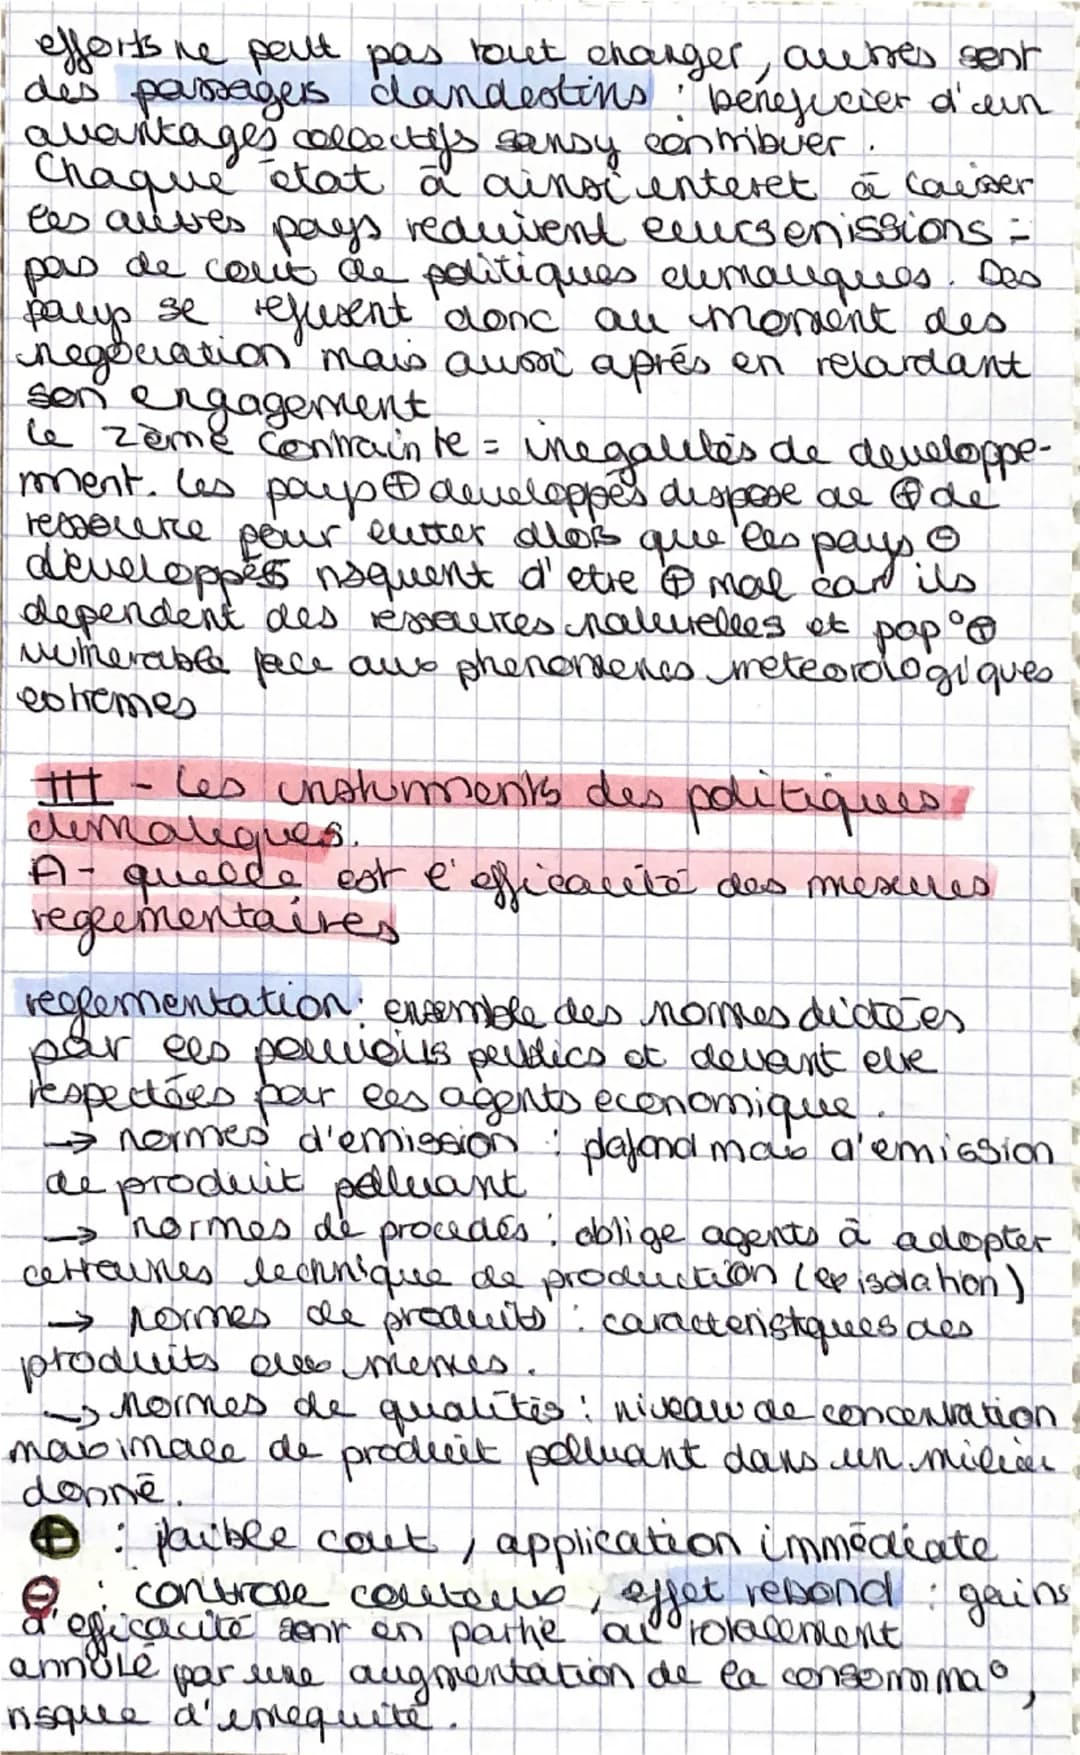 efforts ne peut pas tout changer, autres sont
des passagers clandestins : beneficier d'un
avantages collectifs sansy contribuer.
Chaque état à ainsi interet à laisser
les autres pays reduirent leursemissions =
pas de cout de politiques climatiques. Des
pays se refusent donc au moment des
negociation mais aussi aprés en retardant
son engagement
le 2ème contrainte = inegalités de developpe-
ment. les pays ⊕ developpés dispose de ⊕ de
ressource pour lutter alors que les pays ⊖
developpés risquent d'etre ⊕ mal car ils
dependent des ressources naturelles et pop° ⊕
vulnerable face aux phenomenes meteorologiques
extremes
III - les instruments des politiques
climatiques.
A- quelle est l'efficacité des mesures
reglementaires
reglementation : ensemble des normes dictées
par les pouvoirs publics et devant etre
respectées par les agents economique.
→ normes d'emission : plafond max d'emission
de produit polluant
→ normes de procedés : oblige agents à adopter
certaines technique de production (ex isolation)
→ normes de produits : caracteristiques des
produits eux memes.
→ normes de qualités : niveau de concentration
maximale de produit polluant dans un milieu
donné.
⊕ : faible cout, application immédiate
⊖ : controle couteux, effet rebond : gains
d'efficacité sont en partie ou totalement
annulé par une augmentation de la consomma°,
risque d'inequité.